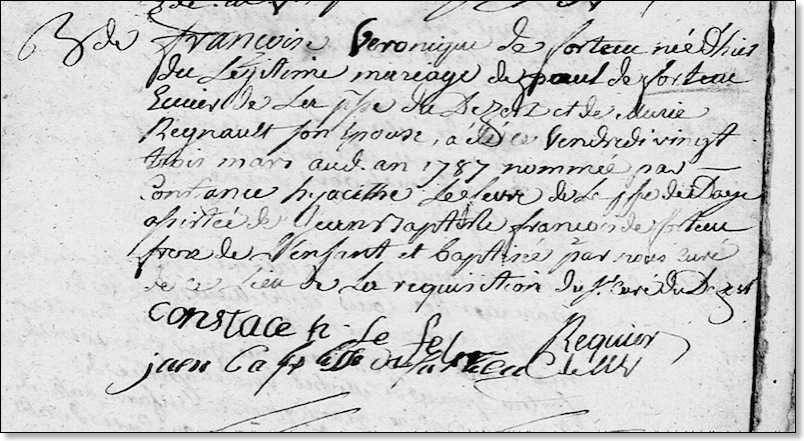 B de françoise Veronique de forteau née d'hier
du Légitime mariage de paul de forteau
Ecuier de La psse du Dezert et de Marie
Regnault son Epouse, a été ce vendredi vingt
trois mars aud. an 1787 nommée par
Constance hyacithe Lefevre de La psse de
assistée de Jean Baptiste françois de forteau
frere de L'enfant et baptisée par nous curé
de ce Lieu de La requisition du sr. curé du Dezert
constace h. Le fe
Requier
jaen